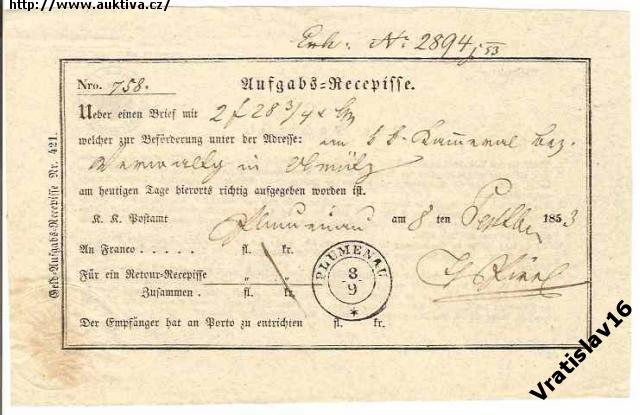 http://www.auktiva.cz/
Exh: No 2894/53
Nro. 758. Aufgabs=Recepisse.
Ueber einen Brief mit 2 f 28 3/4 x
welcher zur Beförderung unter der Adresse: an k k Kammeral Bez.
Verwaltg in Olmütz
am heutigen Tage hierorts richtig aufgegeben worden ist.
K. K. Postamt Plumenau am 8 ten Septber 1853
An Franco . . . . . fl. kr.
Für ein Retour-Recepisse " . "
Zusammen . fl. kr.
Der Empfänger hat an Porto zu entrichten fl. kr.
Geld-Aufgabs-Recepisse Nr. 421.
PLUMENAU
8
9
*
Vratislav16